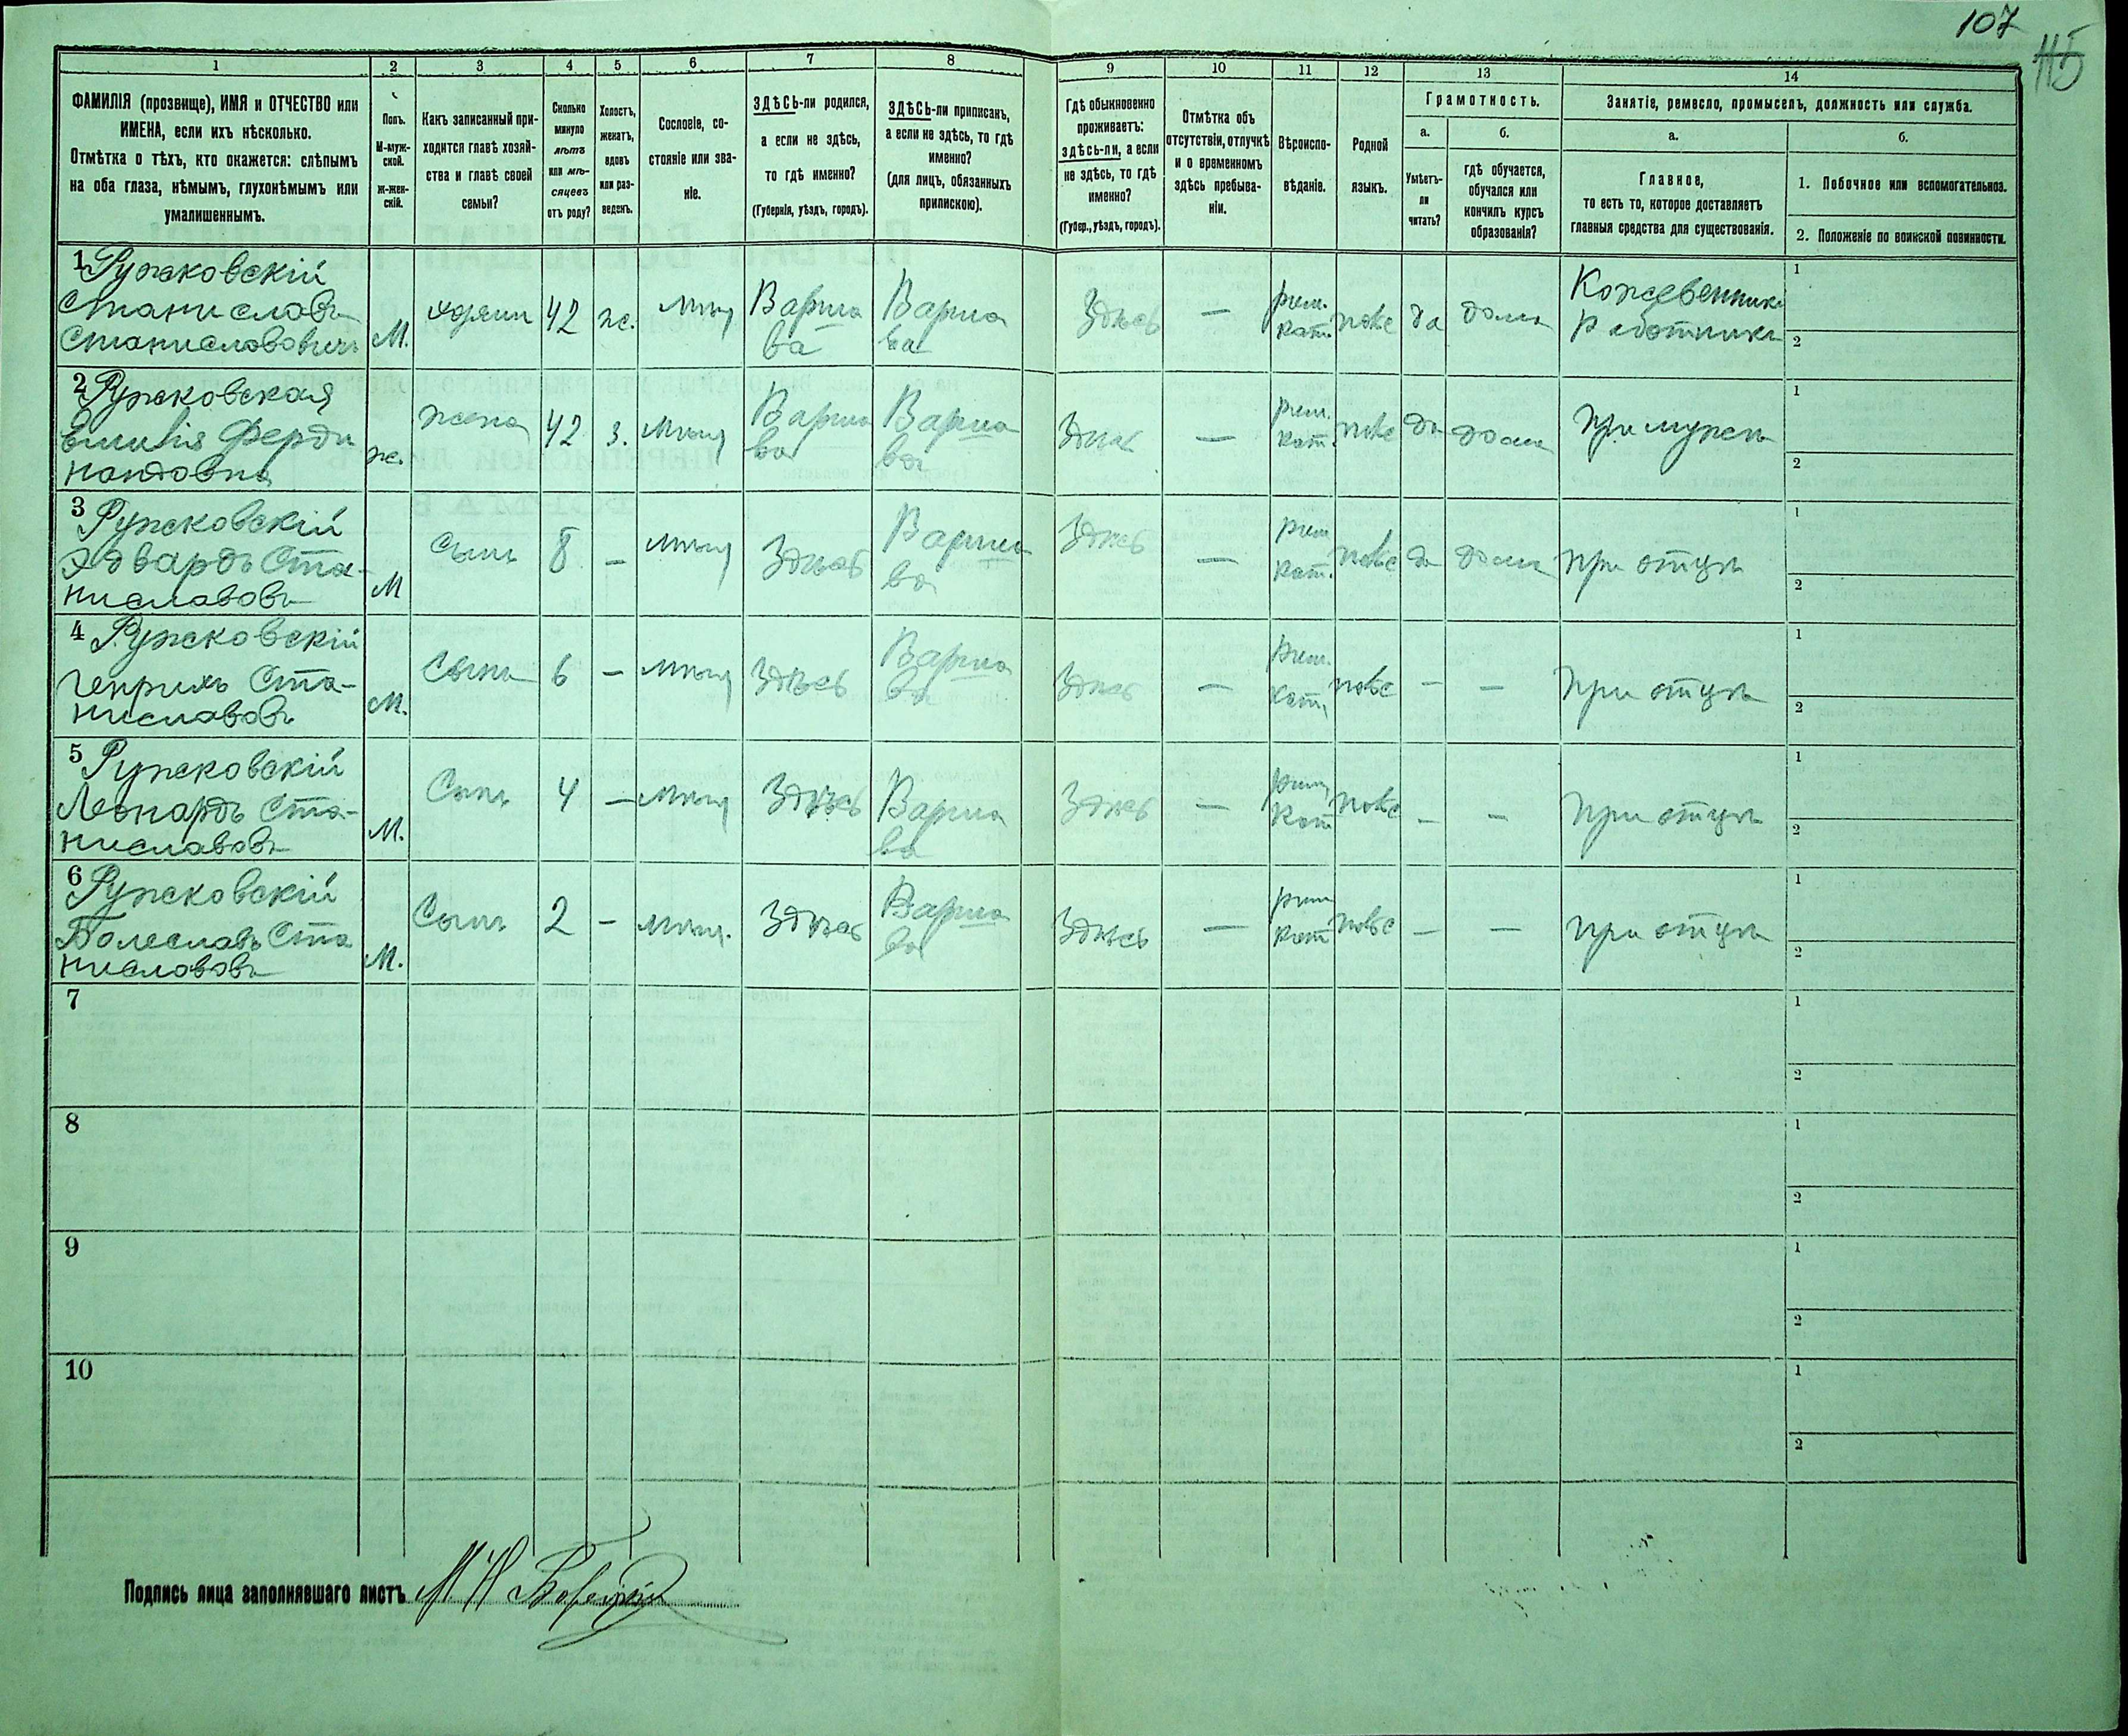 107
115
1 2 3 4 5 6 7 8 9 10 11 12 13 14
ФАМИЛІЯ (прозвище), ИМЯ и ОТЧЕСТВО или
ИМЕНА, если ихъ нѣсколько.
Отмѣтка о тѣхъ, кто окажется: слѣпымъ
на оба глаза, нѣмымъ, глухонѣмымъ или
умалишеннымъ.
Полъ.
М-муж-
ской.
ж-жен-
скій.
Какъ записанный при-
ходится главѣ хозяй-
ства и главѣ своей
семьи?
Сколько
минуло
лѣтъ
или мѣ-
сяцевъ
отъ роду?
Холостъ,
женатъ,
вдовъ
или раз-
веденъ.
Сословіе, со-
стояніе или зва-
ніе.
ЗДѢСЬ-ли родился,
а если не здѣсь,
то гдѣ именно?
(Губернія, уѣздъ, городъ).
ЗДѢСЬ-ли приписанъ,
а если не здѣсь, то гдѣ
именно?
(для лицъ, обязанныхъ
припискою).
Гдѣ обыкновенно
проживаетъ:
здѣсь-ли, а если
не здѣсь, то гдѣ
именно?
(Губер., уѣздъ, городъ).
Отмѣтка объ
отсутствіи, отлучкѣ
и о временномъ
здѣсь пребыва-
ніи.
Вѣроиспо-
вѣданіе.
Родной
языкъ.
Грамотность.
а.
Умѣетъ-
ли
читать?
б.
гдѣ обучается,
обучался или
кончилъ курсъ
образованія?
Занятіе, ремесло, промыселъ, должность или служба.
а.
Главное,
то есть то, которое доставляетъ
главныя средства для существованія.
б.
1. Побочное или вспомогательное.
2. Положеніе по воинской повинности.
1 Ружковскій
Станиславъ
Станиславовичъ
М. 42 ж. Варша
ва Варша
ва Здѣсь — рим.
кат. да дома Кожевенникъ
Работникъ
1
2
2 Ружковская
Эмилія Ферди
нандовна
ж. жена 42 з. Варша
ва Варша
ва Здѣсь — рим.
кат. да дома при мужѣ
1
2
3 Ружковскій
Эдвардъ Ста-
ниславовъ
М Сынъ 8 – Здѣсь Варша
ва Здѣсь — рим
кат. да дома при отцѣ
1
2
4 Ружковскій
Генрихъ Ста-
ниславовъ
М. Сынъ 6 – Здѣсь Варша
ва Здѣсь — рим.
кат. – – при отцѣ
1
2
5 Ружковскій
Леонардъ Ста-
ниславовъ
М. Сынъ 4 – Здѣсь Варша
ва Здѣсь — рим
кат – – при отцѣ
1
2
6 Ружковскій
Болеславъ Ста
ниславовъ
М. Сынъ 2 – Здѣсь Варша
ва Здѣсь — рим
кат – – при отцѣ
1
2
7
1
2
8
1
2
9
1
2
10
1
2
Подпись лица заполнявшаго листъ